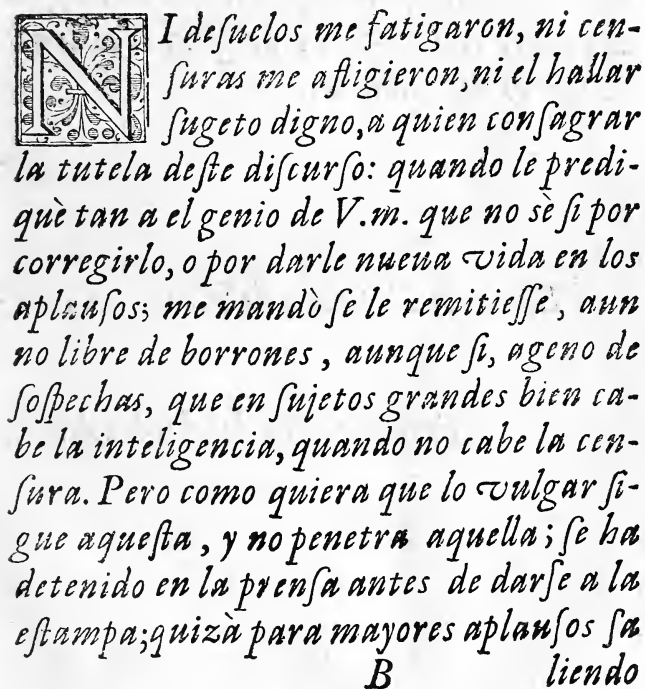 NI desuelos me fatigaron, ni cen-
suras me afligieron, ni el hallar
sugeto digno, a quien consagrar
la tutela deste discurso: quando le predi-
què tan a el genio de V.m. que no sè si por
corregirlo, o por darle nueua vida en los
aplausos; me mandò se le remitiesse, aun
no libre de borrones, aunque si, ageno de
sospechas, que en sujetos grandes bien ca-
be la inteligencia, quando no cabe la cen-
sura. Pero como quiera que lo vulgar si-
gue aquesta, y no penetra aquella; se ha
detenido en la prensa antes de darse a la
estampa; quizà para mayores aplausos sa
B liendo